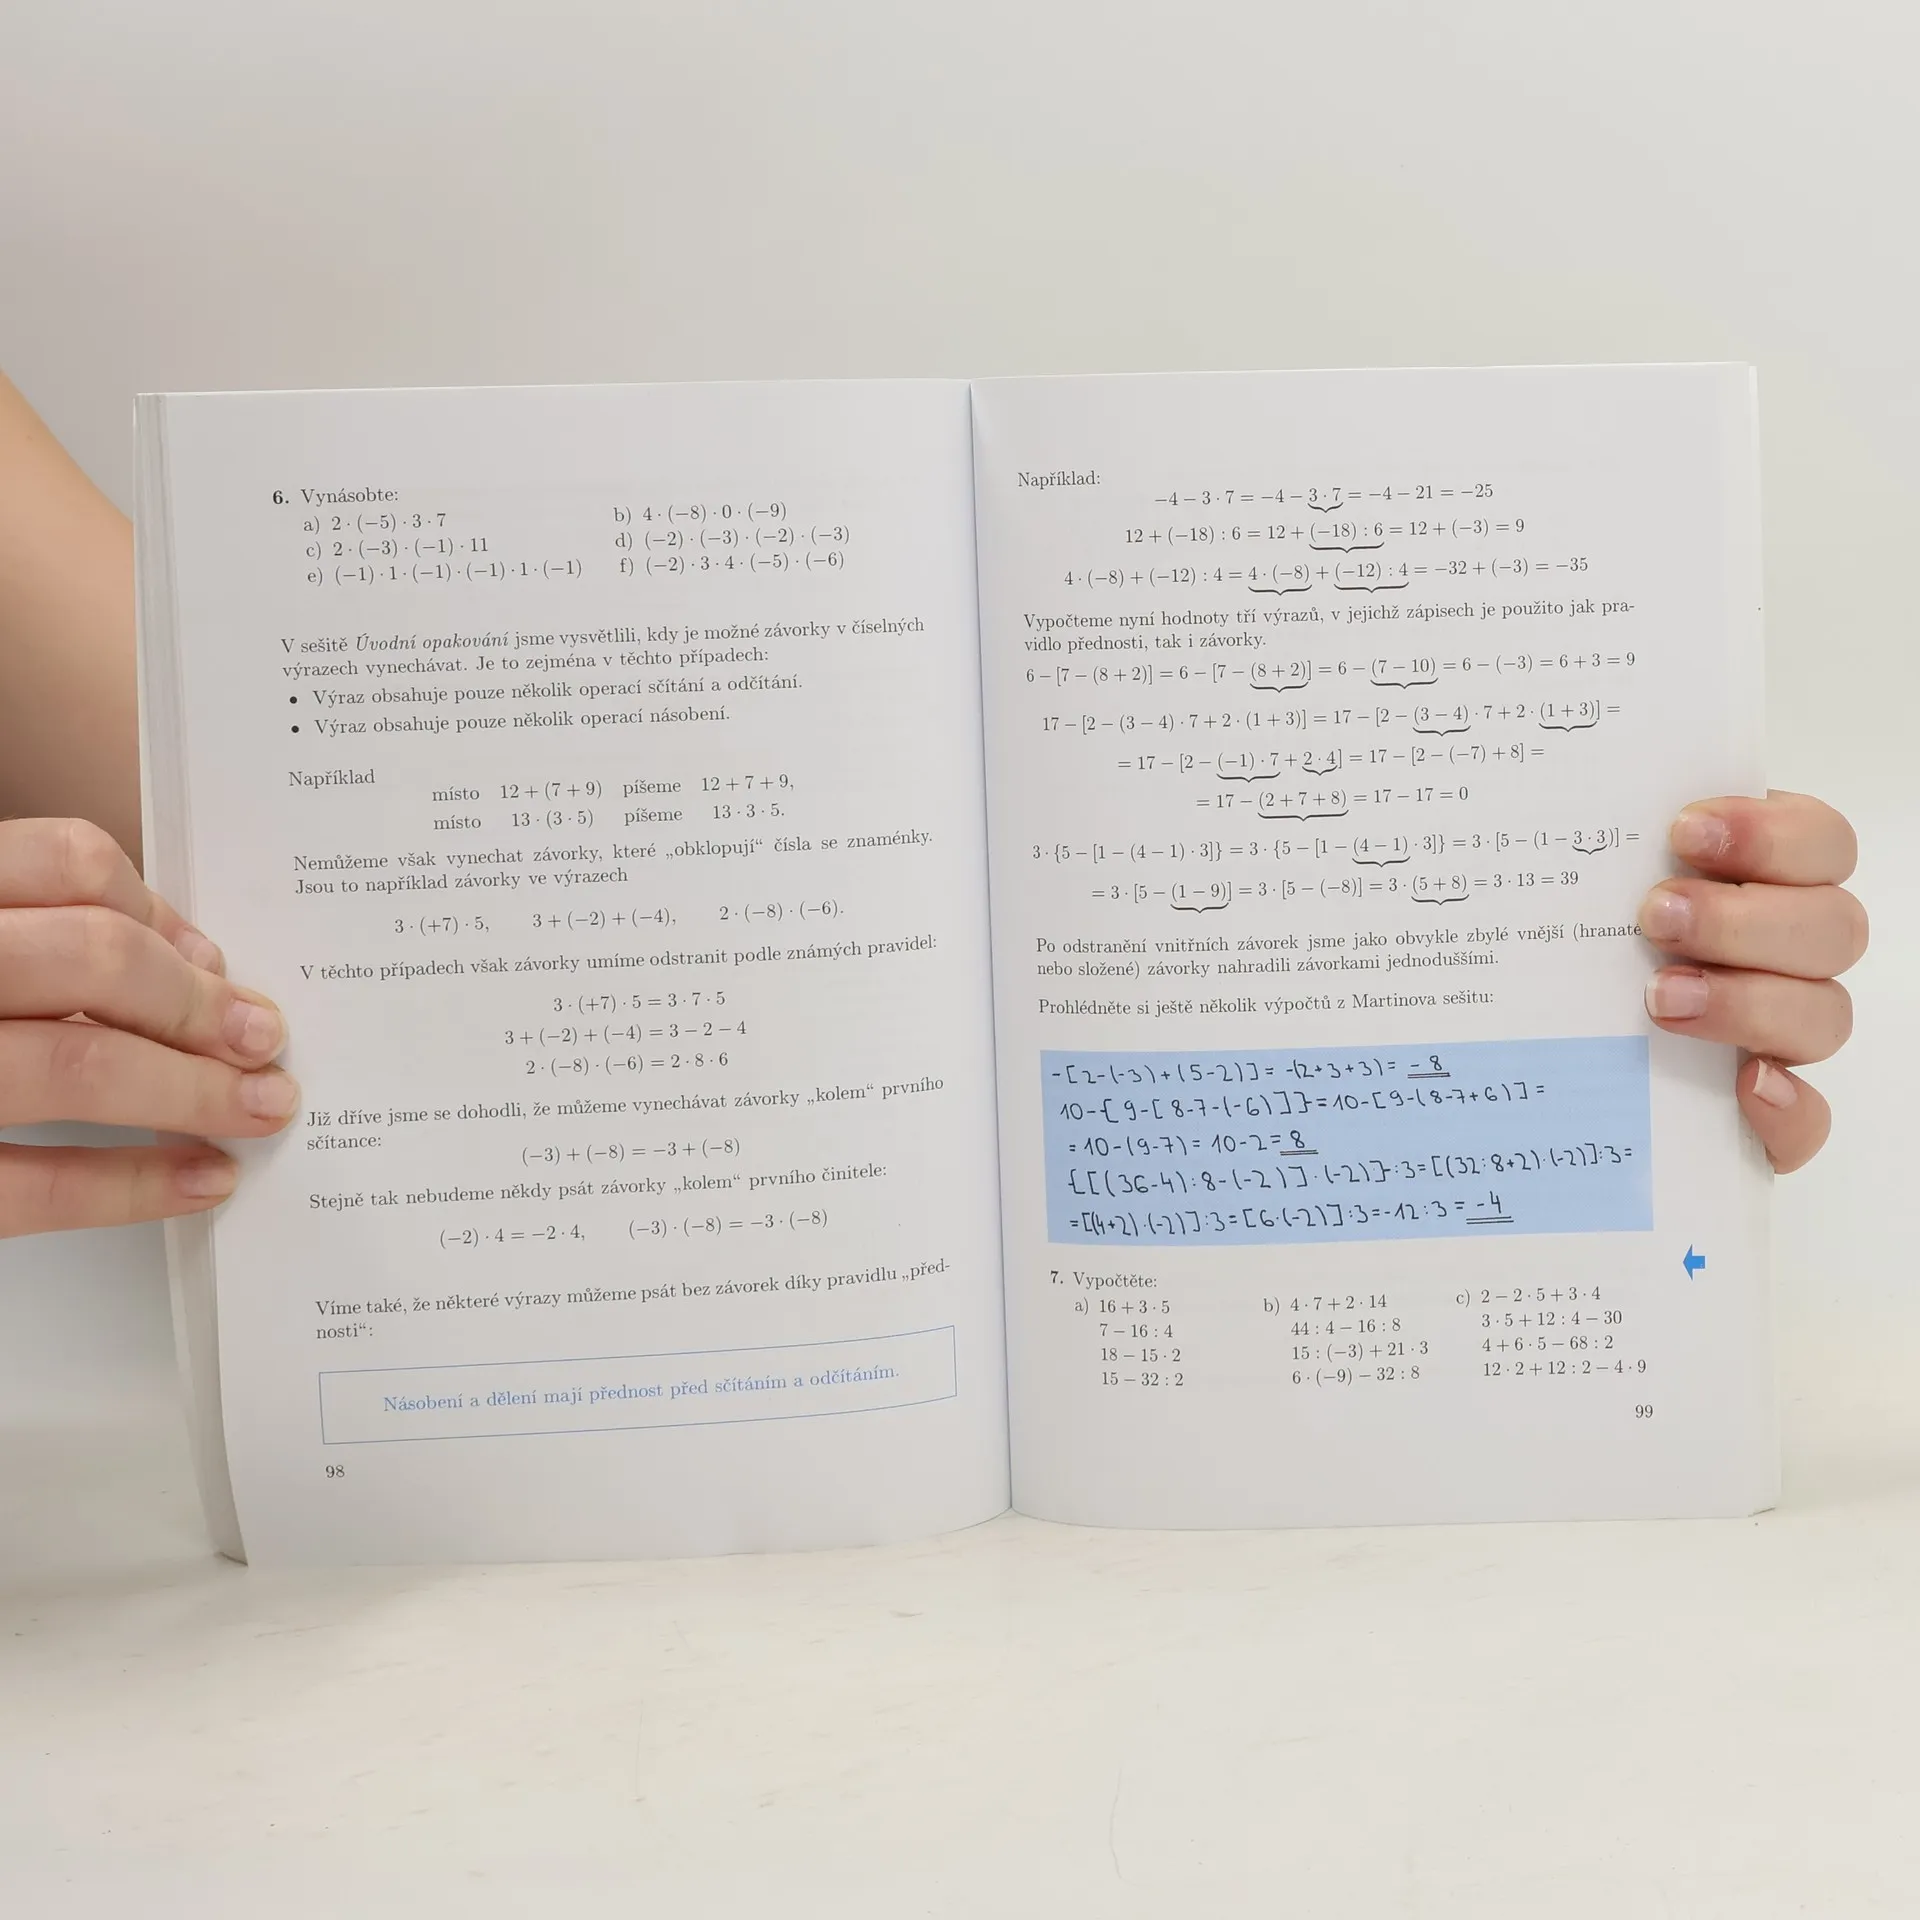 6. Vynásobte:
a) 2 · (−5) · 3 · 7 b) 4 · (−8) · 0 · (−9)
c) 2 · (−3) · (−1) · 11 d) (−2) · (−3) · (−2) · (−3)
e) (−1) · 1 · (−1) · (−1) · 1 · (−1) f) (−2) · 3 · 4 · (−5) · (−6)
V sešitě Úvodní opakování jsme vysvětlili, kdy je možné závorky v číselných
výrazech vynechávat. Je to zejména v těchto případech:
• Výraz obsahuje pouze několik operací sčítání a odčítání.
• Výraz obsahuje pouze několik operací násobení.
Například
místo 12 + (7 + 9) píšeme 12 + 7 + 9,
místo 13 · (3 · 5) píšeme 13 · 3 · 5.
Nemůžeme však vynechat závorky, které „obklopují“ čísla se znaménky.
Jsou to například závorky ve výrazech
3 · (+7) · 5, 3 + (−2) + (−4), 2 · (−8) · (−6).
V těchto případech však závorky umíme odstranit podle známých pravidel:
3 · (+7) · 5 = 3 · 7 · 5
3 + (−2) + (−4) = 3 − 2 − 4
2 · (−8) · (−6) = 2 · 8 · 6
Již dříve jsme se dohodli, že můžeme vynechávat závorky „kolem“ prvního
sčítance:
(−3) + (−8) = −3 + (−8)
Stejně tak nebudeme někdy psát závorky „kolem“ prvního činitele:
(−2) · 4 = −2 · 4, (−3) · (−8) = −3 · (−8)
Víme také, že některé výrazy můžeme psát bez závorek díky pravidlu „před-
nosti“:
Násobení a dělení mají přednost před sčítáním a odčítáním.
98
Například:
−4 − 3 · 7 = −4 − 3 · 7 = −4 − 21 = −25
12 + (−18) : 6 = 12 + (−18) : 6 = 12 + (−3) = 9
4 · (−8) + (−12) : 4 = 4 · (−8) + (−12) : 4 = −32 + (−3) = −35
Vypočteme nyní hodnoty tří výrazů, v jejichž zápisech je použito jak pra-
vidlo přednosti, tak i závorky.
6 − [7 − (8 + 2)] = 6 − [7 − (8 + 2)] = 6 − (7 − 10) = 6 − (−3) = 6 + 3 = 9
17 − [2 − (3 − 4) · 7 + 2 · (1 + 3)] = 17 − [2 − (3 − 4) · 7 + 2 · (1 + 3)] =
= 17 − [2 − (−1) · 7 + 2 · 4] = 17 − [2 − (−7) + 8] =
= 17 − (2 + 7 + 8) = 17 − 17 = 0
3 · {5 − [1 − (4 − 1) · 3]} = 3 · {5 − [1 − (4 − 1) · 3]} = 3 · [5 − (1 − 3 · 3)] =
= 3 · [5 − (1 − 9)] = 3 · [5 − (−8)] = 3 · (5 + 8) = 3 · 13 = 39
Po odstranění vnitřních závorek jsme jako obvykle zbylé vnější (hranaté
nebo složené) závorky nahradili závorkami jednoduššími.
Prohlédněte si ještě několik výpočtů z Martinova sešitu:
-[2-(-3)+(5-2)]= -(2+3+3)= -8
10-{9-[8-7-(-6)]}=10-[9-(8-7+6)]=
=10-(9-7)= 10-2=8
{[(36-4):8-(-2)]·(-2)}:3=[(32:8+2)·(-2)]:3=
=[(4+2)·(-2)]:3=[6·(-2)]:3=-12:3=-4
7. Vypočtěte:
a) 16 + 3 · 5 b) 4 · 7 + 2 · 14 c) 2 − 2 · 5 + 3 · 4
7 − 16 : 4 44 : 4 − 16 : 8 3 · 5 + 12 : 4 − 30
18 − 15 · 2 15 : (−3) + 21 · 3 4 + 6 · 5 − 68 : 2
15 − 32 : 2 6 · (−9) − 32 : 8 12 · 2 + 12 : 2 − 4 · 9
99